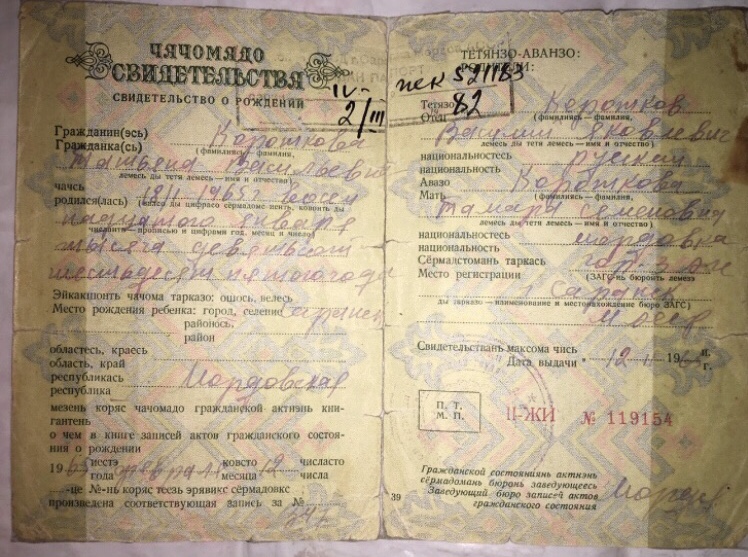 ЧАЧОМАДО
СВИДЕТЕЛЬСТВА
СВИДЕТЕЛЬСТВО О РОЖДЕНИИ
IV-
2/III
Гражданин(эсь)
Гражданка(сь) Короткова
(фамилиясь) — фамилия,
Татьяна Васильевна
лемесь ды тетя лемесь — имя и отчество)
чачсь
родился(лась) 18/I 1965 г. восем
надцатого января
числанть — прописью и цифрами год, месяц и число)
тысяча девятьсот
шестьдесят пятого года
Эйкакшонть чачома тарказо: ошось, велесь
Место рождения ребенка: город, селение Саранск
районось,
район
областесь, краесь
область, край
республикась
республика Мордовская
мезень коряс чачомадо гражданской актнэнь кни-
гантень
о чем в книге записей актов гражданского состоя-
ния о рождении
19 65 иестэ февраля ковсто 12 числасто
года месяца числа
-це №-нь коряс теезь эрявикс сёрмадовкс
произведена соответствующая запись за №
ТЕТЯНЗО-АВАНЗО:
РОДИТЕЛИ:
521163
82
Тетязо
Отец Коротков
(фамилиясь — фамилия,
Василий Яковлевич
лемесь ды тетя лемесь — имя и отчество)
национальностесь русский
национальность
Авазо
Мать Короткова
(фамилиясь — фамилия,
Тамара Семеновна
лемесь ды тетя лемесь — имя и отчество)
национальностесь мордовка
национальность
Сёрмалстомань таркась горЗАГС
Место регистрации (ЗАГС-нь бюронть лемезэ
Саранск
ды тарказо — наименование и местонахождение бюро ЗАГС)
МАССР
Свидетельствань максома чись
Дата выдачи „12“ II 196 и.
г.
П. Т.
М. П.
II-ЖИ № 119154
39
Гражданской состояниянь актнэнь
сёрмадомань бюронь заведующеесь
Заведующий бюро записей актов
гражданского состояния